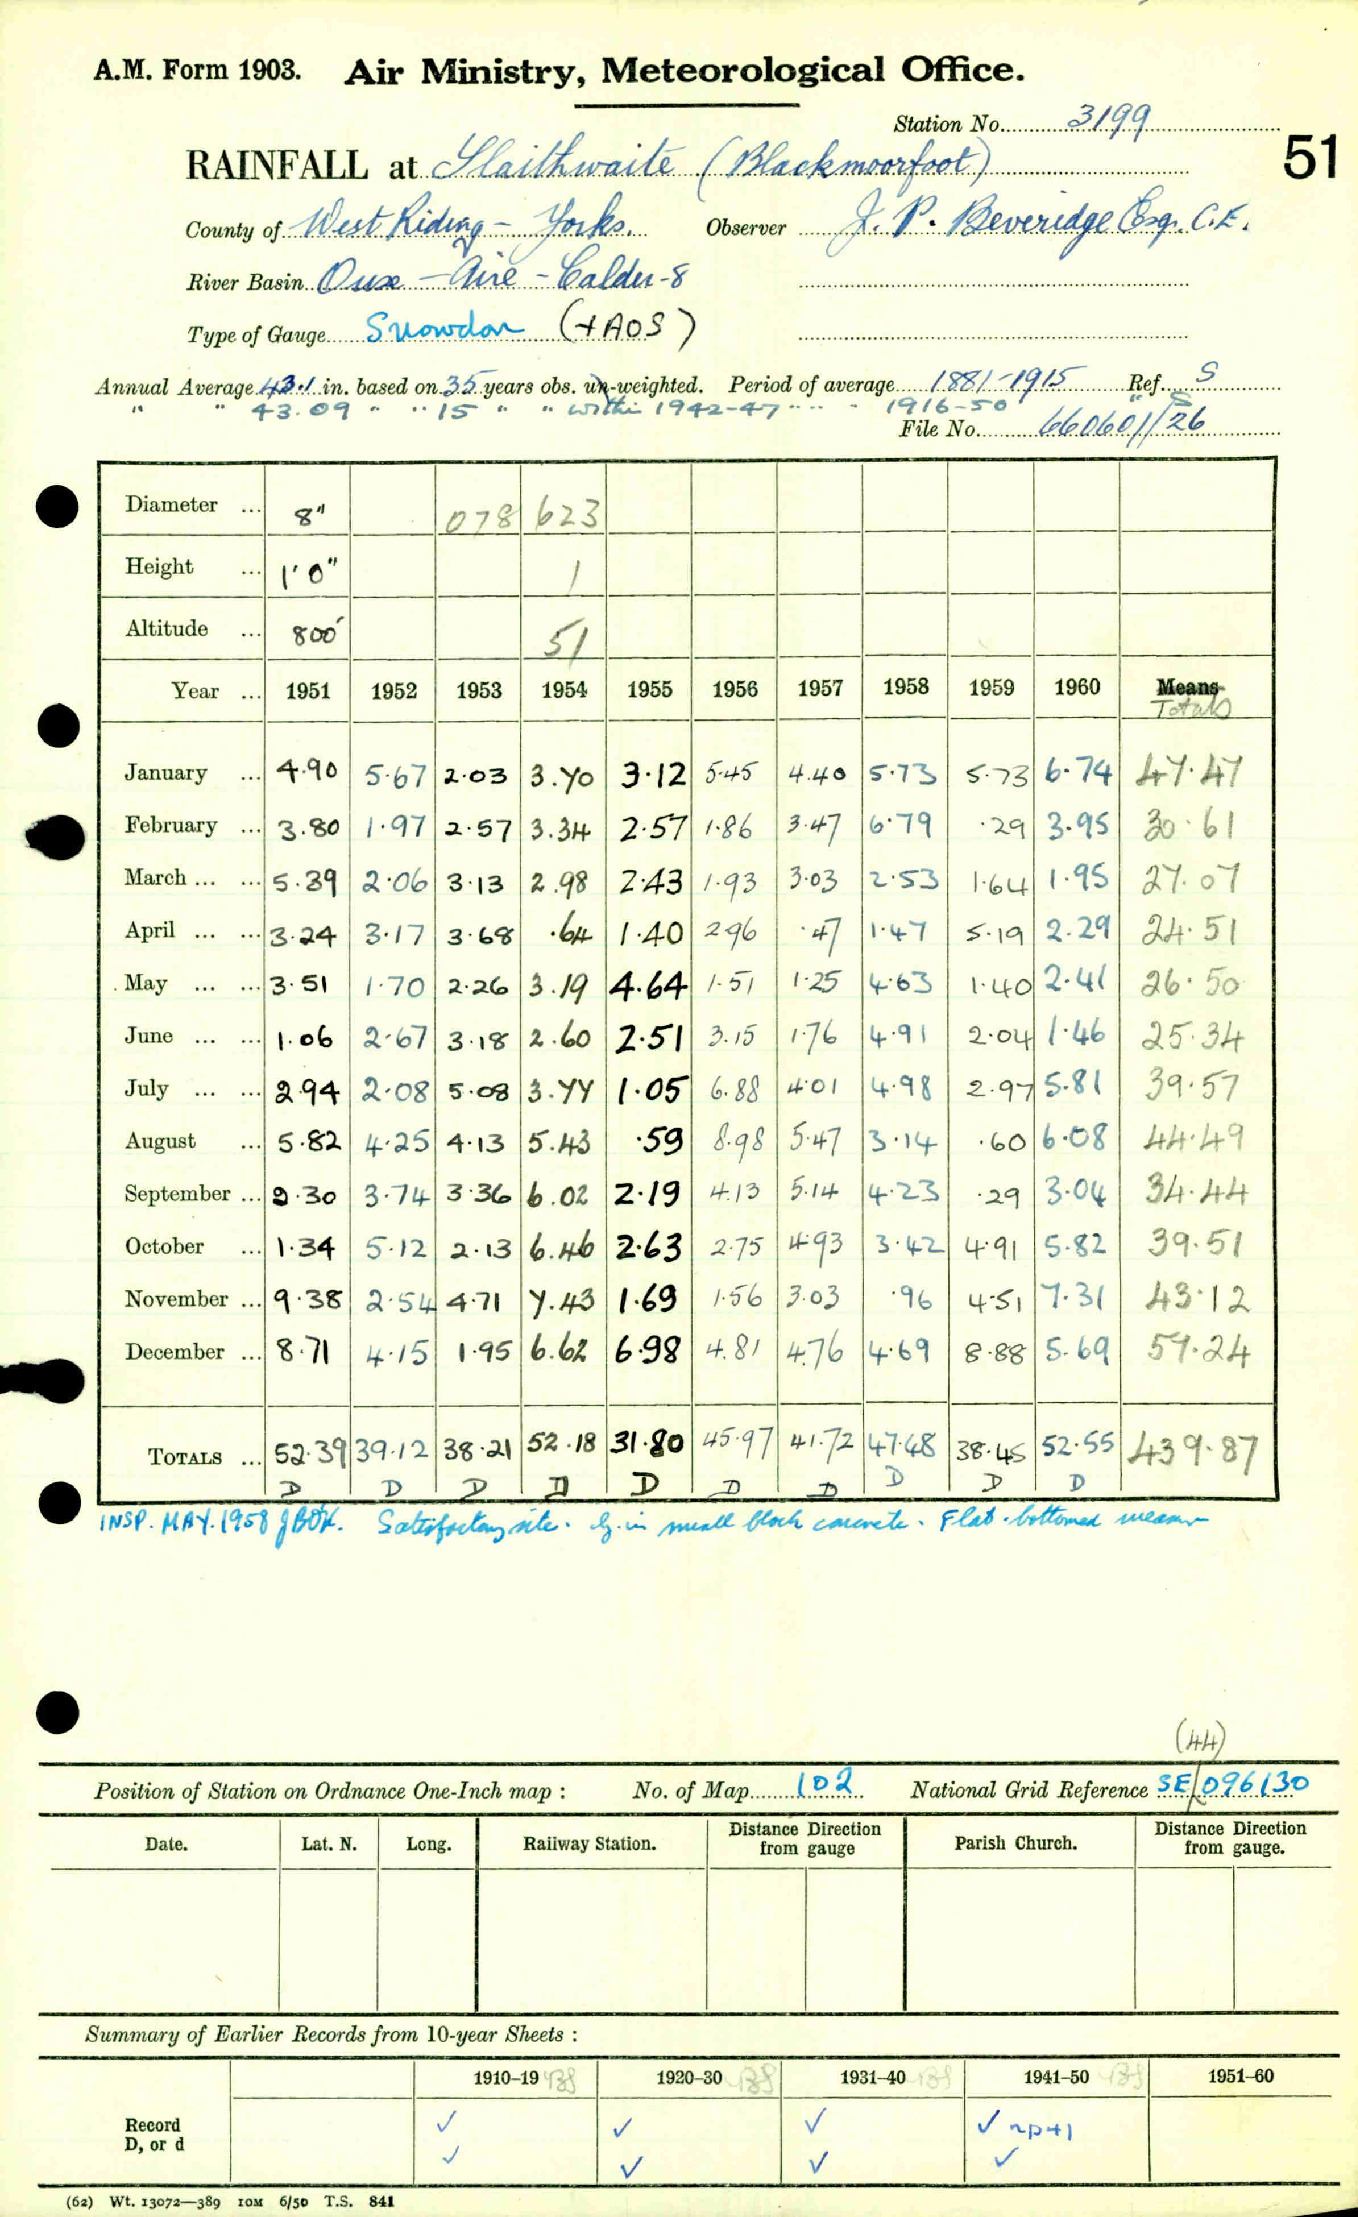 A.M. Form 1903. Air Ministry, Meteorological Office.
Station No. 3199
51
RAINFALL at Slaithwaite (Blackmoorfoot)
County of West Riding - Yorks. Observer J. P. Beveridge Esq. C.E.
River Basin Ouse - Aire - Calder - 8
Type of Gauge Snowdon (+AOS)
Annual Average 43.1 in. based on 35 years obs. un-weighted. Period of average 1881-1915 Ref. S
" " 43.09 " " 15 " " within 1942-47 " " " 1916-50 " S
File No. 660601/26
Diameter ... 8" 078 623
Height ... 1'0" 1
Altitude ... 800' 51
Year ... 1951 1952 1953 1954 1955 1956 1957 1958 1959 1960 Means
Totals
January ... 4.90 5.67 2.03 3.70 3.12 5.45 4.40 5.73 5.73 6.74 47.47
February ... 3.80 1.97 2.57 3.34 2.57 1.86 3.47 6.79 .29 3.95 30.61
March ... ... 5.39 2.06 3.13 2.98 2.43 1.93 3.03 2.53 1.64 1.95 27.07
April ... ... 3.24 3.17 3.68 .64 1.40 2.96 .47 1.47 5.19 2.29 24.51
May ... ... 3.51 1.70 2.26 3.19 4.64 1.51 1.25 4.63 1.40 2.41 26.50
June ... ... 1.06 2.67 3.18 2.60 2.51 3.15 1.76 4.91 2.04 1.46 25.34
July ... ... 2.94 2.08 5.08 3.77 1.05 6.88 4.01 4.98 2.97 5.81 39.57
August ... 5.82 4.25 4.13 5.43 .59 8.98 5.47 3.14 .60 6.08 44.49
September ... 2.30 3.74 3.36 6.02 2.19 4.13 5.14 4.23 .29 3.04 34.44
October ... 1.34 5.12 2.13 6.46 2.63 2.75 4.93 3.42 4.91 5.82 39.51
November ... 9.38 2.54 4.71 7.43 1.69 1.56 3.03 .96 4.51 7.31 43.12
December ... 8.71 4.15 1.95 6.62 6.98 4.81 4.76 4.69 8.88 5.69 57.24
TOTALS ... 52.39 39.12 38.21 52.18 31.80 45.97 41.72 47.48 38.45 52.55 439.87
D D D D D D D D D D
INSP. MAY. 1958 Satisfactory site. in small block concrete. Flat-bottomed measure
(44)
Position of Station on Ordnance One-Inch map : No. of Map 102 National Grid Reference SE/096130
Date. Lat. N. Long. Railway Station. Distance Direction from gauge Parish Church. Distance Direction from gauge.
Summary of Earlier Records from 10-year Sheets :
1910-19 1920-30 1931-40 1941-50 1951-60
Record ✓ ✓ ✓ ✓
D, or d ✓ ✓ ✓ ✓
(62) Wt. 13072—389 10M 6/50 T.S. 841